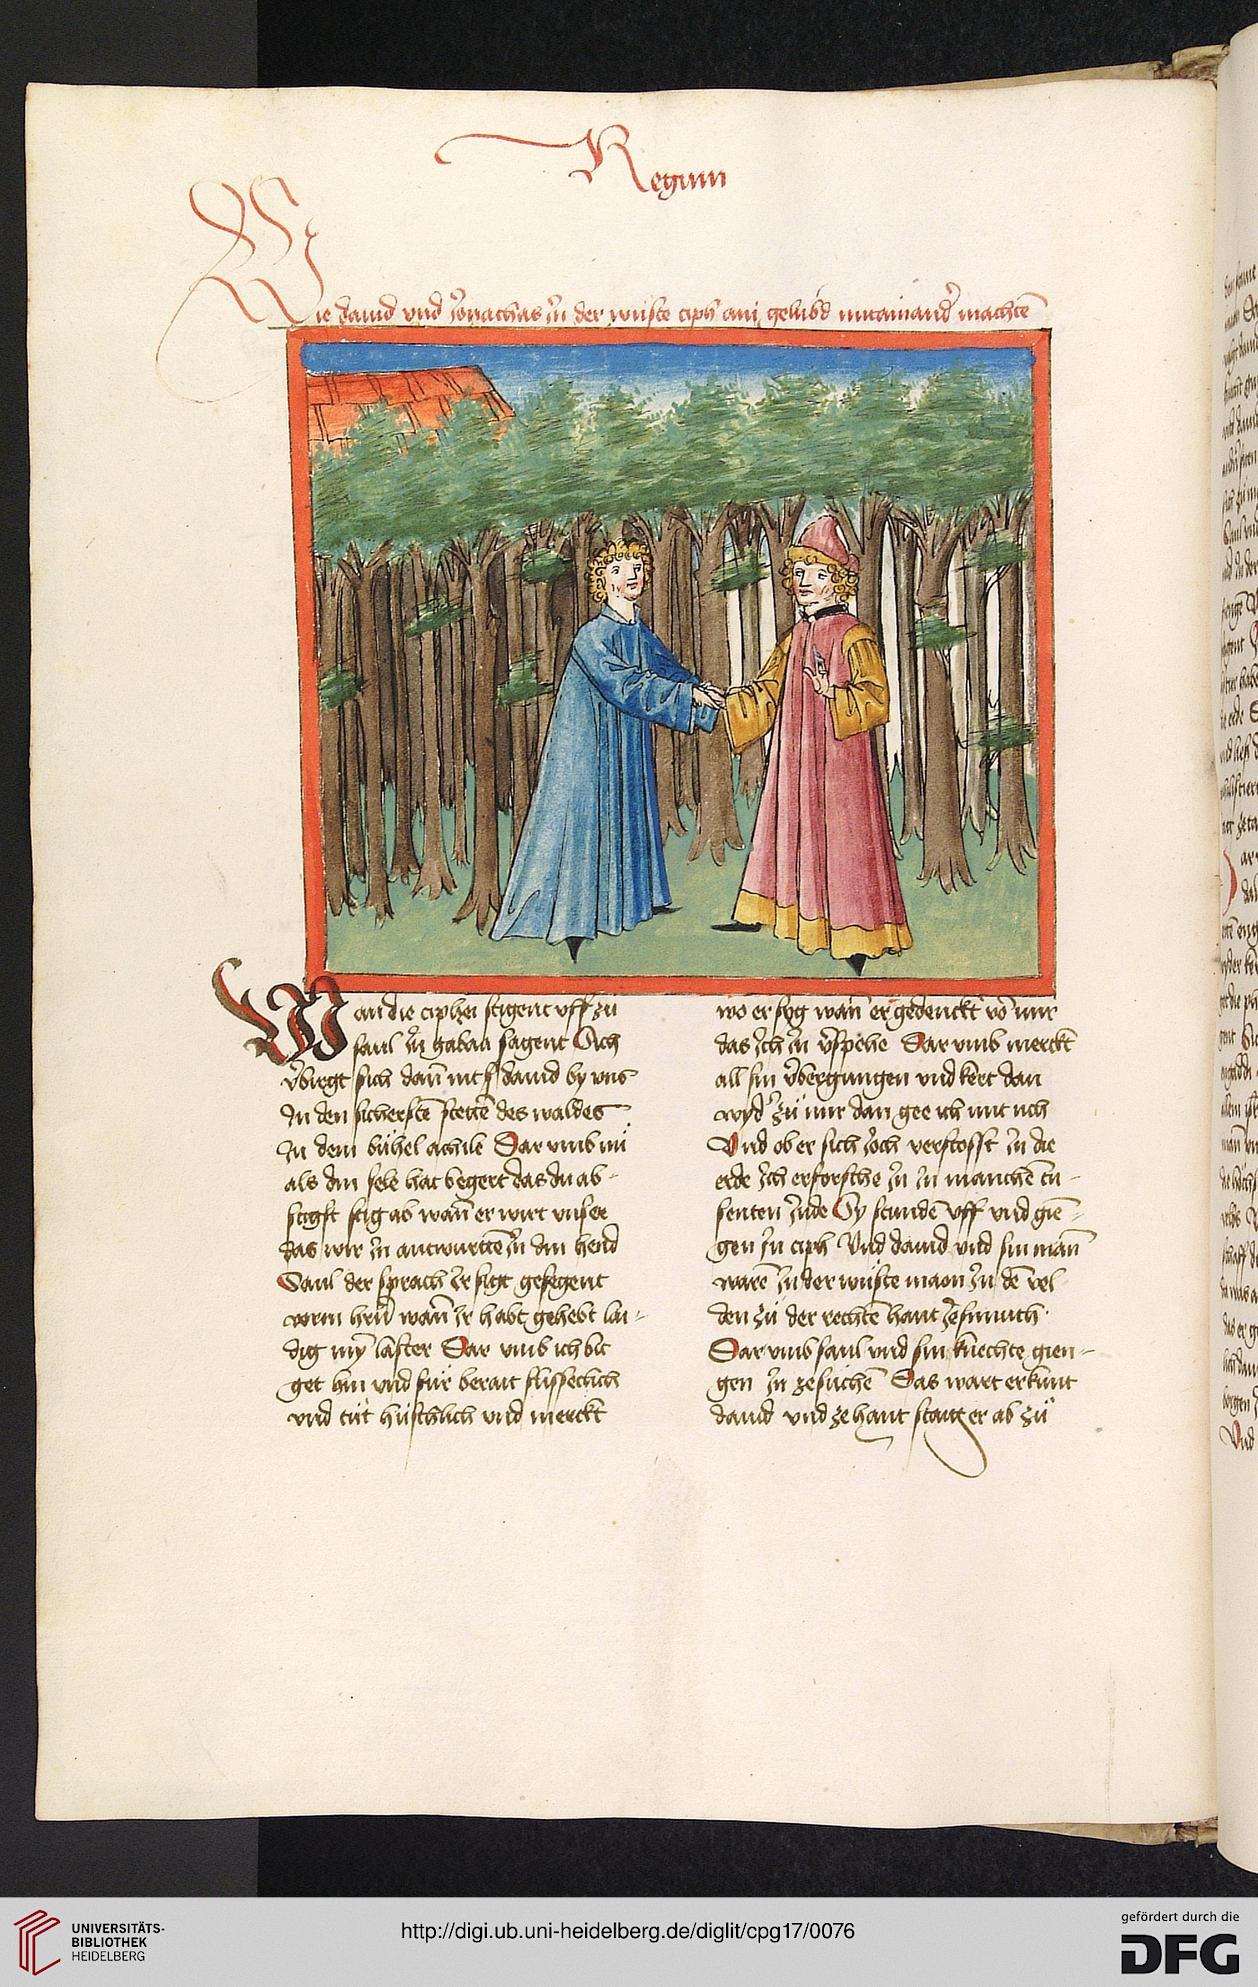 Regum
Wie dauid vnd Jonathas In der wüste ciph ain gelübd mitainandr machte
Wan die ciphei stigent vff zu
saul In gabaa sagent Sich
vbirgt sich dan nit dauid by vns
In den sichersten stetten des waldes
In dem bühel achile Dar vmb nu
als din sele hat begert das du ab-
stigst stig ab wan er wirt vnser
das wir In antwurtten In din hend
Saul der sprach Ir sigt gesegent
vorm hrn wan Ir habt gehebt lai-
dig my laster Dar vmb ich bit
get hin vnd für berait flissecklich
vnd tut hüschlich vnd merckt
wo er syg wan er gedenckt vo mir
das Ich In vspehe Dar vmb merckt
all sin vbergungen vnd kert dan
wyd zu mir dan gee ich mit uch
Vnd ob er sich Joch verstosst In die
erde Ich erforsche In In manche tu-
senten Inde Sy stunde vff vnd gie-
gen In ciph Vnd dauid vnd sin man
ware In der wüste maon In de vel-
den zu der rechte hant Jesimuth
Dar vmb saul vnd sin knechte gien-
gen In zesuchen Das wart erkunt
dauid vnd ze hant staig er ab zu
UNIVERSITÄTS-
BIBLIOTHEK
HEIDELBERG
http://digi.ub.uni-heidelberg.de/diglit/cpg17/0076
gefördert durch die
DFG